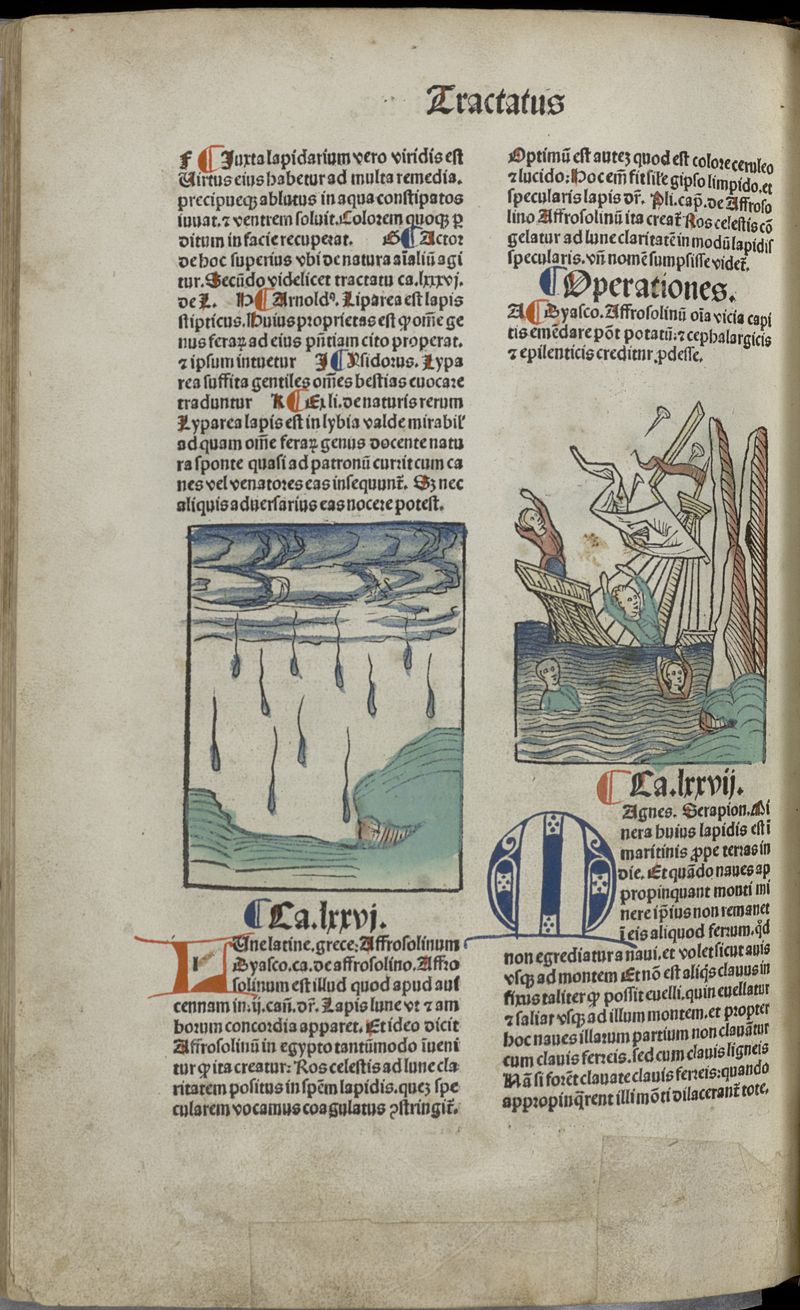 Tractatus
F ¶ Juxta lapidarium vero viridis est
Virtus eius habetur ad multa remedia.
precipueqꝫ ablutus in aqua constipatos
iuuat.⁊ ventrem soluit.Colorem quoqꝫ ꝑ
ditum in facie recuperat. G¶ Actor
de hoc superius vbi de natura aīaliū agi
tur.Secūdo videlicet tractatu ca.lxxxvj.
de L. H¶ Arnoldꝰ. Liparea est lapis
stipticus.Huius proprietas est ꝙ om̄e ge
nus feraꝝ ad eius pn̄tiam cito properat.
⁊ ipsum intuetur J¶ Ysidorus. Lypa
rea suffita gentiles om̄es bestias euocare
traduntur K¶ Ex li.de naturis rerum
Lyparea lapis est in lybia valde mirabil'
ad quam om̄e feraꝝ genus docente natu
ra sponte quasi ad patronū currit cum ca
nes vel venatores eas insequunt̄. Sꝫ nec
aliquis aduersarius eas nocere potest.
¶ Ca.lxxvj.
LUne latine.grece:Affrosolinum
Syasco.ca.de affrosolino.Affro
solinum est illud quod apud aui
cennam in.ij.cañ.dr̄. Lapis lune vt ⁊ am
borum concordia apparet. Et ideo dicit
Affrosolinū in egypto tantūmodo īueni
tur ꝙ ita creatur: Ros celestis ad lune cla
ritatem positus in spēm lapidis.queꝫ spe
cularem vocamus coagulatus ꝯstringit̄.
Optimū est auteꝫ quod est colore ceruleo
⁊ lucido:Hoc em̄ fit sil'e gipso limpido.et
specularis lapis dr̄. Pli.cap̄.de Affroso
lino Affrosolinū ita creat̄ Ros celestis cō
gelatur ad lune claritatē in modū lapidis
specularis.vn̄ nomē sumpsisse videt̄.
¶ Operationes.
A ¶ Syasco. Affrosolinū oīa vicia capi
tis emēdare pōt potatū:⁊ cephalargicis
⁊ epilenticis creditur ꝓdesse.
¶ Ca.lxxvij.
MAgnes. Serapion.Mi
nera huius lapidis est ī
maritinis ꝓpe terras in
die. Et quādo naues ap
propinquant monti mi
nere ip̄ius non remanet
ī eis aliquod ferrum.qd̄
non egrediatur a naui.et volet sicut auis
vsqꝫ ad montem Et nō est aliq̄s clauus in
fixus taliter ꝙ possit euelli.quin euellatur
⁊ saliat vsqꝫ ad illum montem.et propter
hoc naues illarum partium non clauātur
cum clauis ferreis.sed cum clauis ligneis
Nā si forēt clauate clauis ferreis:quando
appropinq̄rent illi mōti dilacerant̄ tote.